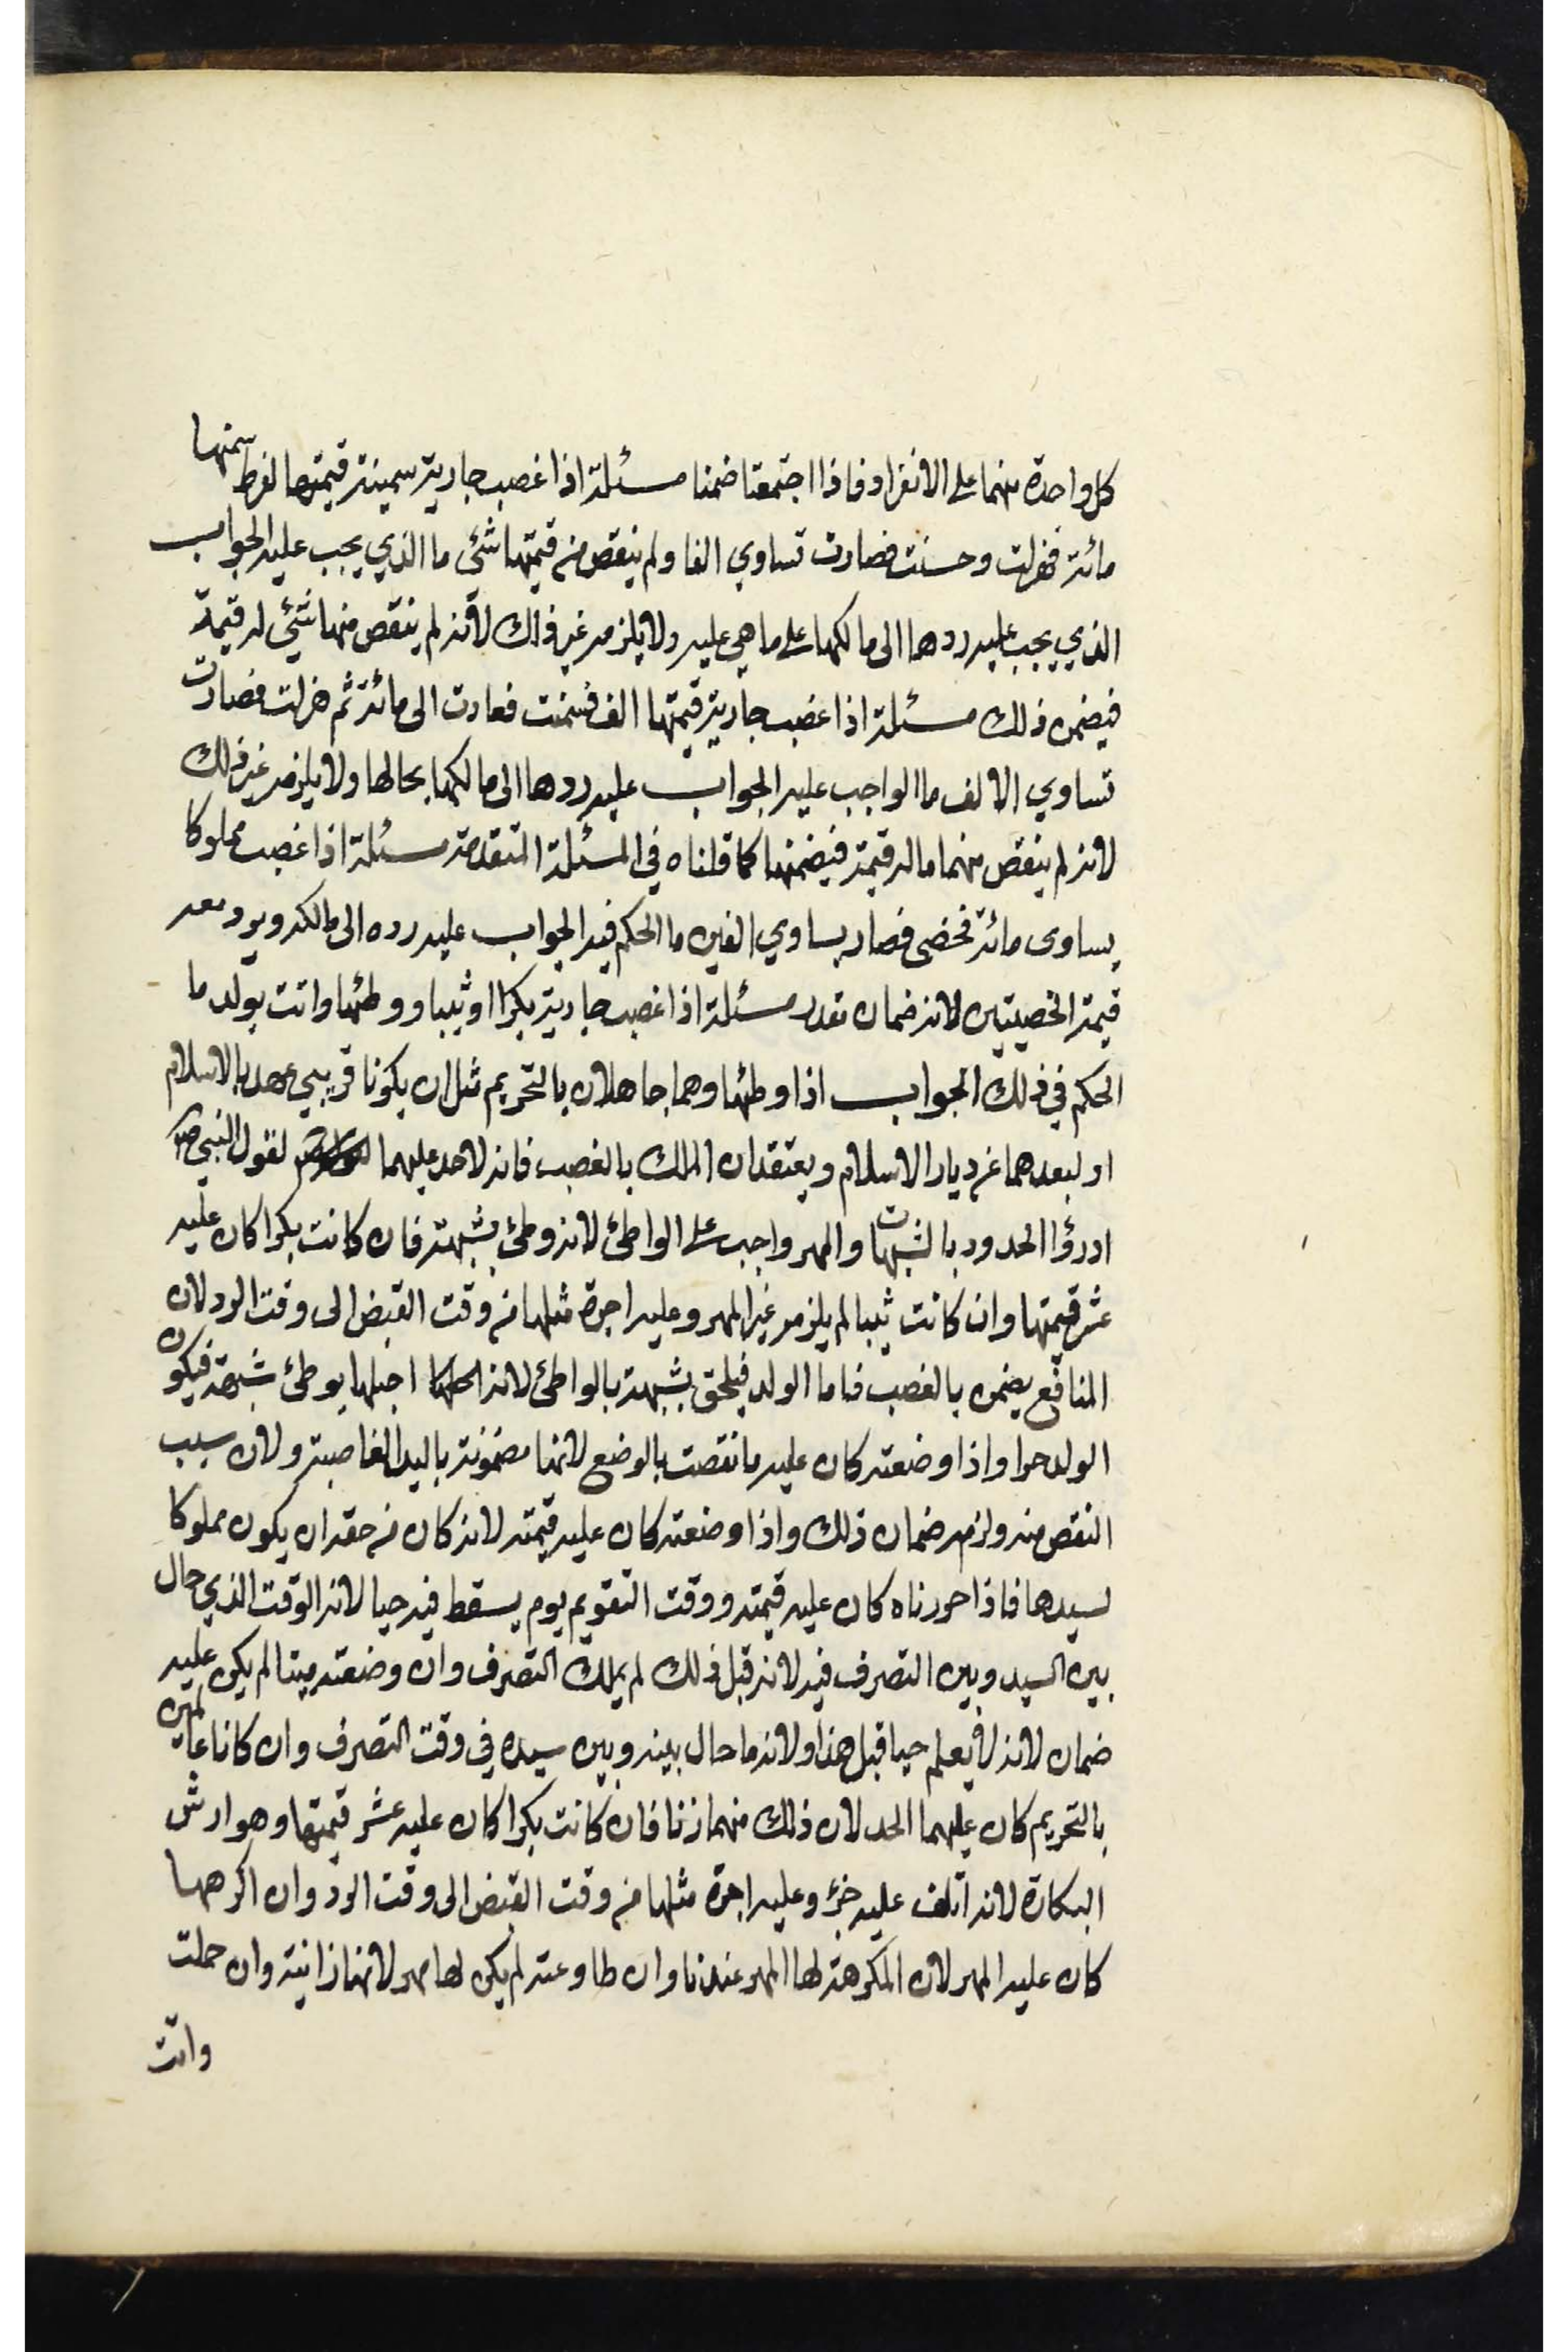 كل واحدة منهما على الانفراد فاذا اجتمعتا ضمنا مسئلة اذا غصب جارية سمينة قيمتها لفرط سمنها
مائة فهزلت وحسنت فصارت تساوي الفا ولم ينقص من قيمتها شئ ما الذي يجب عليه الجواب
الذي يجب عليه ردها الى مالكها على ما هي عليه ولا يلزمه غير ذلك لانه لم ينقص منها شئ له قيمة
فيضمن ذلك مسئلة اذا غصب جارية قيمتها الف فسمنت فعادت الى مائة ثم هزلت فصارت
تساوي الالف ما الواجب عليه الجواب عليه ردها الى مالكها بحالها ولا يلزمه غير ذلك
لانه لم ينقص منهما ماله قيمة فيضمنها كما قلناه في المسئلة المتقدمة مسئلة اذا غصب مملوكا
يساوى مائة فخصى فصار يساوي الفين ما الحكم فيه الجواب عليه رده الى مالكه ويرد معه
قيمة الخصيتين لانه ضمان مقدر مسئلة اذا غصب جارية بكرا او ثيبا ووطئها واتت بولد ما
الحكم في ذلك الجواب اذا وطئها وهما جاهلان بالتحريم مثل ان يكونا قريبي عهد بالاسلام
او لبعدهما عن ديار الاسلام ويعتقدان الملك بالغصب فانه لا حد عليهما لقول النبي ص
ادرؤا الحدود بالشبهات والمهر واجب على الواطئ لانه وطئ بشبهة فان كانت بكرا كان عليه
عشر قيمتها وان كانت ثيبا لم يلزمه غير المهر وعليه اجرة مثلها من وقت القبض الى وقت الرد لان
المنافع يضمن بالغصب فاما الولد فيلحق بشبهة بالواطئ لانه احبلها بوطئ شبهة فيكون
الولد حرا واذا وضعته كان عليه ما نقصت بالوضع لانها مضمونة باليد الغاصبة ولان سبب
النقص منه ولزمه ضمان ذلك واذا وضعته كان عليه قيمته لانه كان من حقه ان يكون مملوكا
لسيدها فاذا حررناه كان عليه قيمته ووقت التقويم يوم يسقط فيه حيا لانه الوقت الذي حال
بين السيد وبين التصرف فيه لانه قبل ذلك لم يملك التصرف وان وضعته ميتا لم يكن عليه
ضمان لانه لا يعلم حيا قبل هذا ولانه ما حال بينه وبين سيده في وقت التصرف وان كانا عالمين
بالتحريم كان عليهما الحد لان ذلك منهما زنا فان كانت بكرا كان عليه عشر قيمتها وهو ارش
البكارة لانه اتلف عليه جزء وعليه اجرة مثلها من وقت القبض الى وقت الرد وان اكرهها
كان عليه المهر لان المكرهة لها المهر عندنا وان طاوعته لم يكن لها مهر لانها زانية وان حملت
واتت